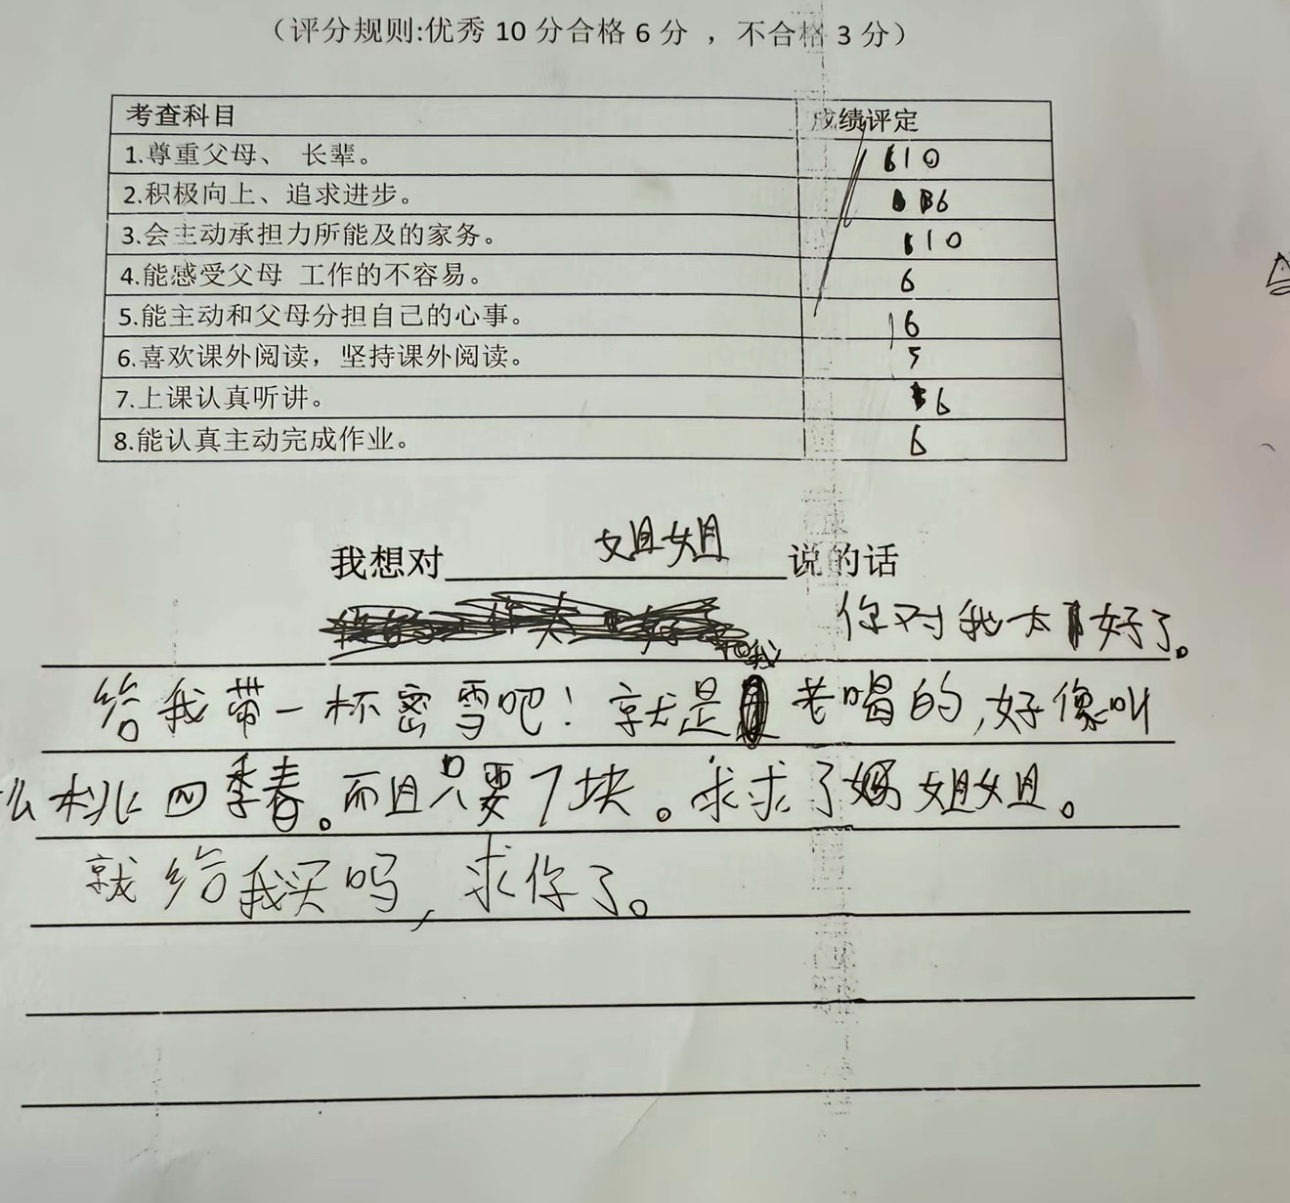 （评分规则:优秀 10 分合格 6 分 ，不合格 3 分）
考查科目 成绩评定
1.尊重父母、 长辈。 10
2.积极向上、追求进步。 6
3.会主动承担力所能及的家务。 10
4.能感受父母 工作的不容易。 6
5.能主动和父母分担自己的心事。 6
6.喜欢课外阅读，坚持课外阅读。 5
7.上课认真听讲。 6
8.能认真主动完成作业。 6
我想对 姐姐 说的话
你对我太好了。
给我带一杯密雪吧！就是我老喝的,好像叫
么桃四季春。而且只要7块。求求了姐姐。
就给我买吗,求你了。